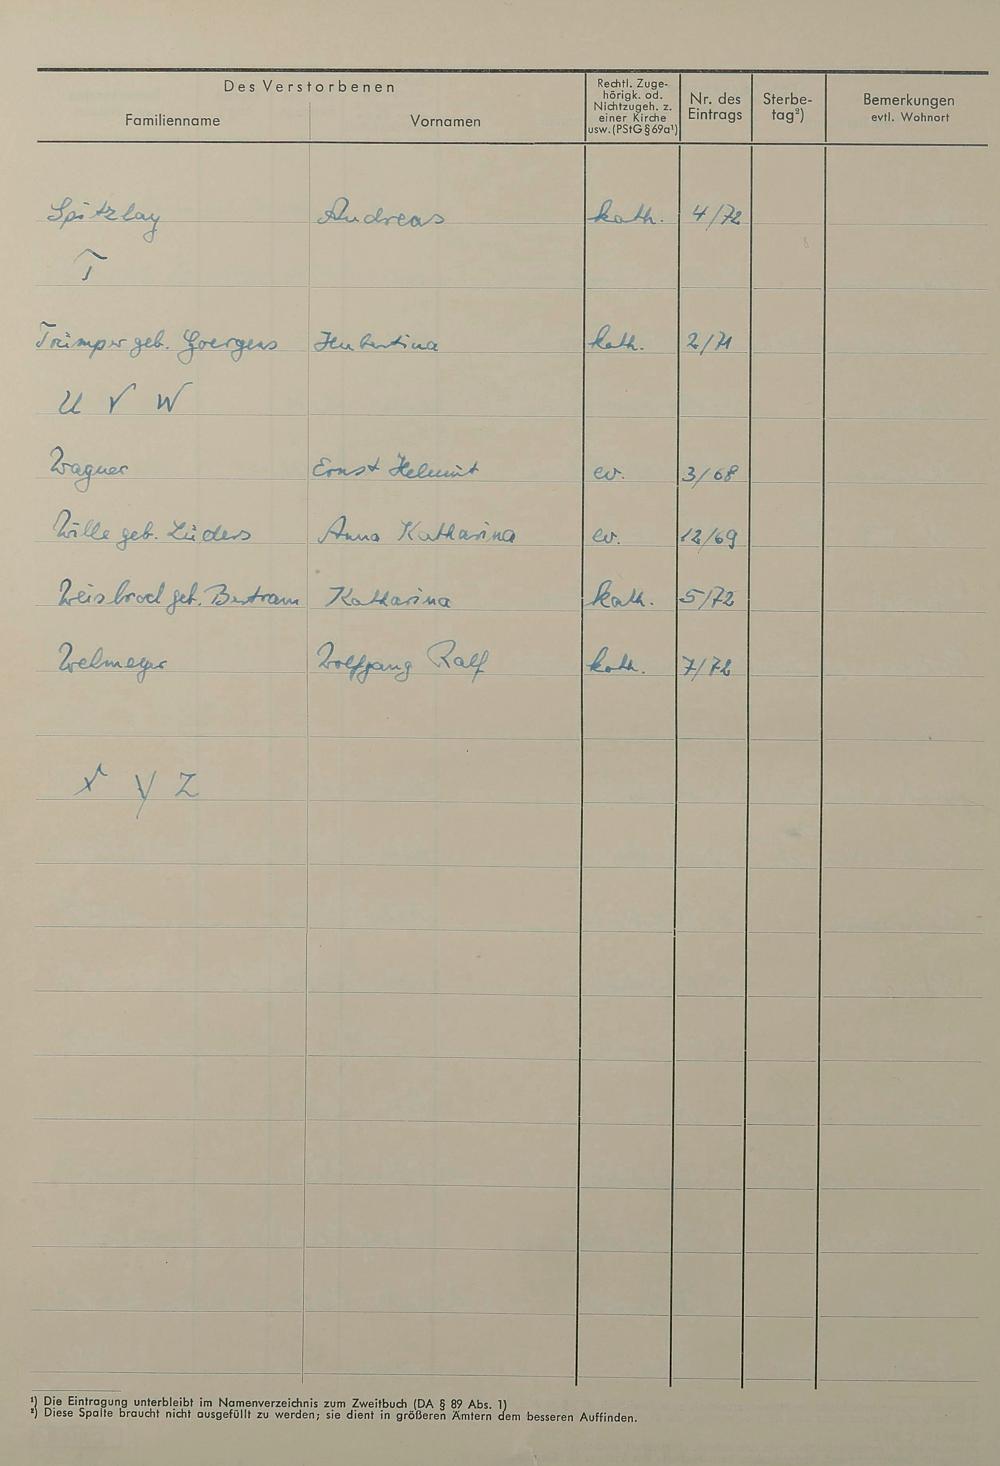 Des Verstorbenen
Familienname
Vornamen
Rechtl. Zuge-
hörigk. od.
Nichtzugeh. z.
einer Kirche
usw. (PStG § 69a¹)
Nr. des
Eintrags
Sterbe-
tag²)
Bemerkungen
evtl. Wohnort
Spitzlay Andreas kath. 4/72
T
Trümper geb. Goergens Hubertina kath. 2/71
U V W
Wagner Ernst Helmut ev. 3/68
Wille geb. Lüders Anna Katharina ev. 12/69
Weisbrod geb. Bertram Katharina kath. 5/72
Welmeyer Wolfgang Ralf kath. 7/72
X Y Z
¹) Die Eintragung unterbleibt im Namenverzeichnis zum Zweitbuch (DA § 89 Abs. 1)
²) Diese Spalte braucht nicht ausgefüllt zu werden; sie dient in größeren Ämtern dem besseren Auffinden.